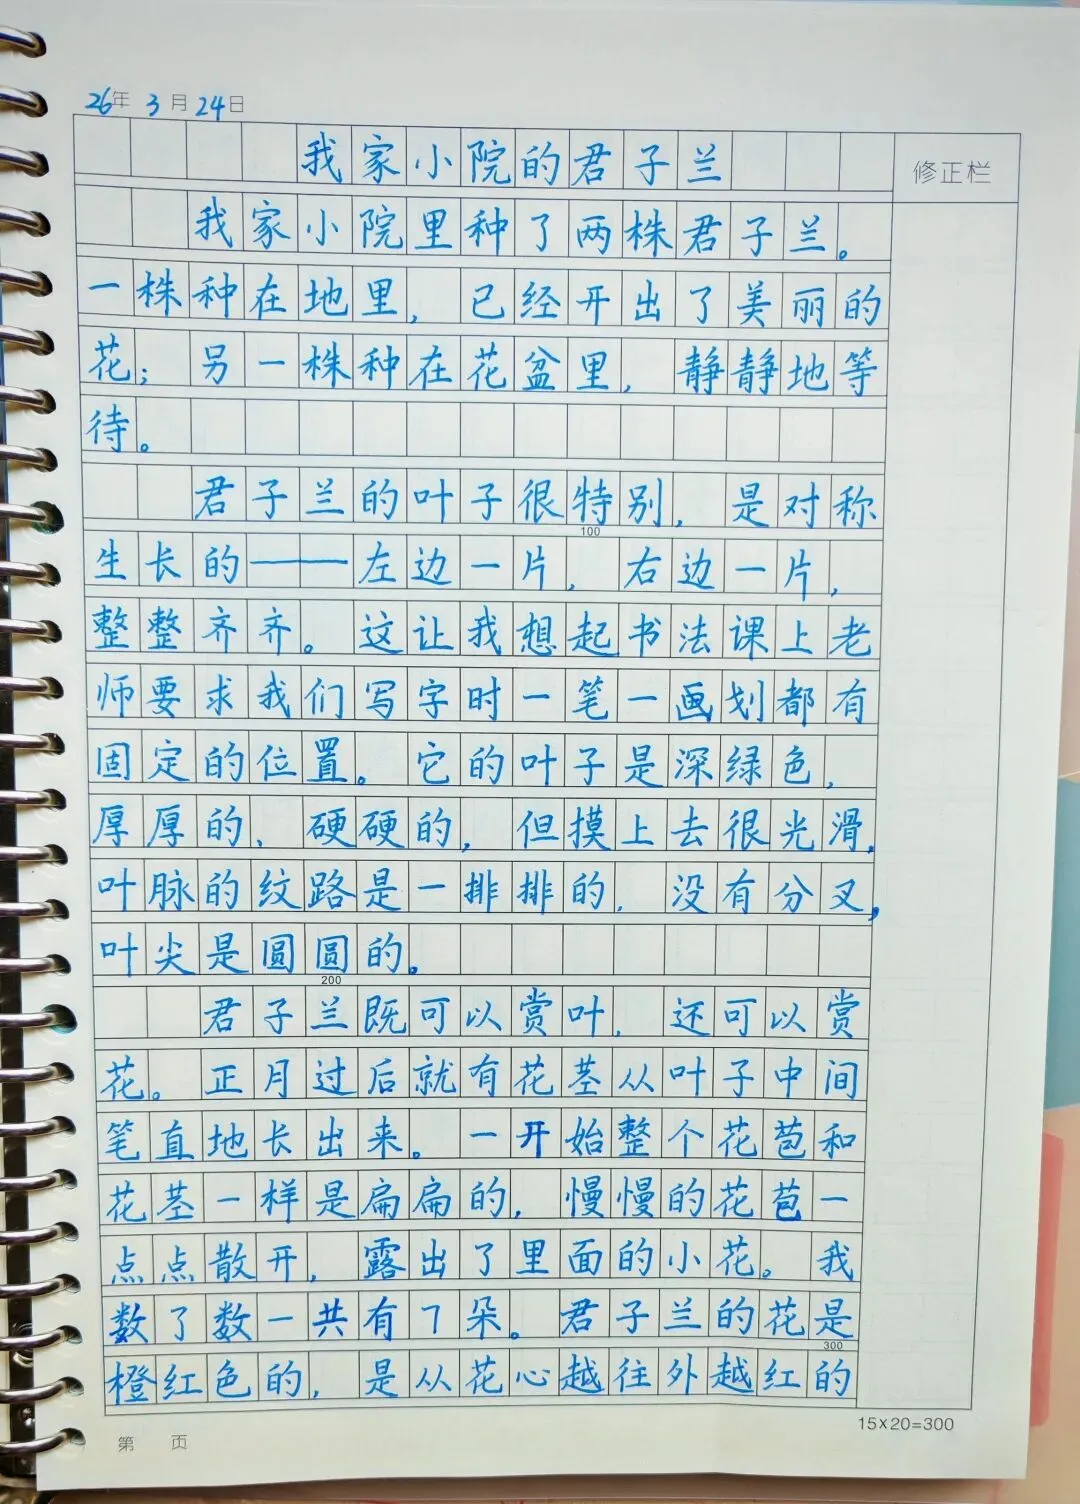 26年 3月 24日
我家小院的君子兰
修正栏
我家小院里种了两株君子兰。
一株种在地里，已经开出了美丽的
花；另一株种在花盆里，静静地等
待。
君子兰的叶子很特别，是对称
100
生长的——左边一片，右边一片，
整整齐齐。这让我想起书法课上老
师要求我们写字时一笔一画划都有
固定的位置。它的叶子是深绿色，
厚厚的、硬硬的，但摸上去很光滑，
叶脉的纹路是一排排的，没有分叉，
叶尖是圆圆的。
200
君子兰既可以赏叶，还可以赏
花。正月过后就有花茎从叶子中间
笔直地长出来。一开始整个花苞和
花茎一样是扁扁的，慢慢的花苞一
点点散开，露出了里面的小花。我
数了数一共有7朵。君子兰的花是
300
橙红色的，是从花心越往外越红的
15×20=300
第 页